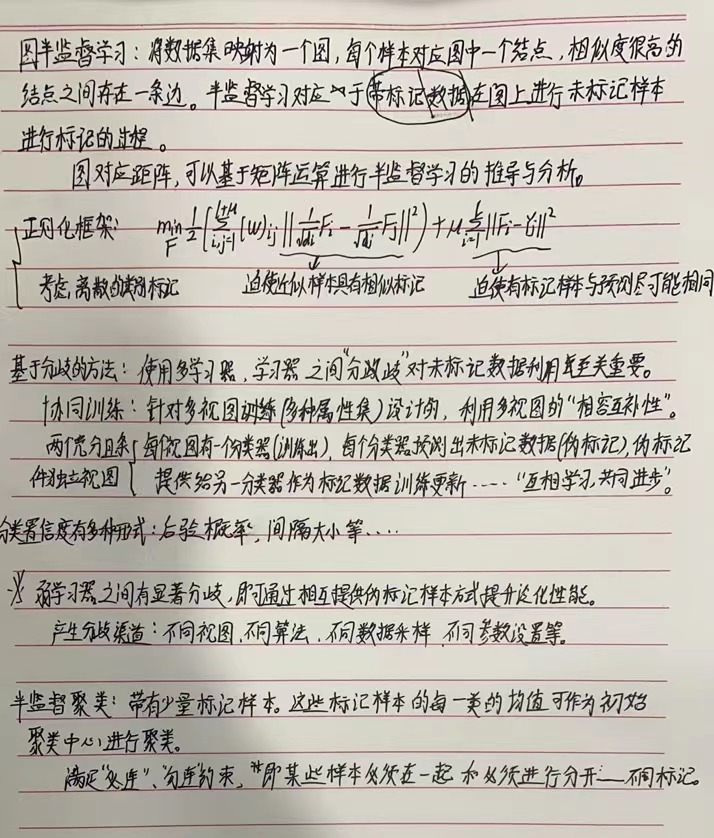 图半监督学习：将数据集映射为一个图，每个样本对应图中一个结点，相似度很高的
结点之间存在一条边。半监督学习对应于带标记数据在图上进行未标记样本
进行标记的过程。
图对应距阵，可以基于矩阵运算进行半监督学习的推导与分析。
正则化框架： min_F 1/2 (∑_{i,j=1}^{l+u} (W)_{ij} ||1/√d_i F_i − 1/√d_j F_j||²) + μ ∑_{i=1}^{l} ||F_i − Y_i||²
考虑离散的类别标记 迫使近似样本具有相似标记 迫使有标记样本与预测尽可能相同
基于分歧的方法：使用多学习器，学习器之间“分歧”对未标记数据利用至关重要。
协同训练：针对多视图训练(多种属性集)设计的，利用多视图的“相容互补性”。
两个充分且条 每个视图有一个分类器(训练出)，每个分类器预测出未标记数据(伪标记)，伪标记
件独立视图 提供给另一分类器作为标记数据训练更新……“互相学习，共同进步”。
分类置信度有多种形式：后验概率，间隔大小等……
※ 弱学习器之间有显著分歧，即可通过相互提供伪标记样本方式提升泛化性能。
产生分歧渠道：不同视图、不同算法、不同数据采样、不同参数设置等。
半监督聚类：带有少量标记样本。这些标记样本的每一类的均值可作为初始
聚类中心，进行聚类。
满足“必连”、“勿连”约束，即某些样本必须在一起和必须进行分开——不同标记。